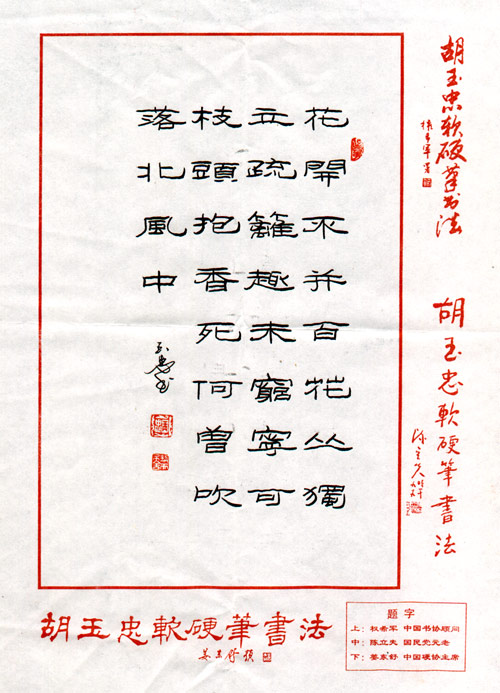 花開不并百花丛獨
立疏籬趣未窮寧可
枝頭抱香死何曾吹
落北風中
玉忠书
胡玉忠软硬筆书法
权希军
胡玉忠軟硬筆書法
陈立夫
胡玉忠軟硬筆書法
姜东舒题
题字
上:权希军 中国书协顾问
中:陈立夫 国民党元老
下:姜东舒 中国硬协主席